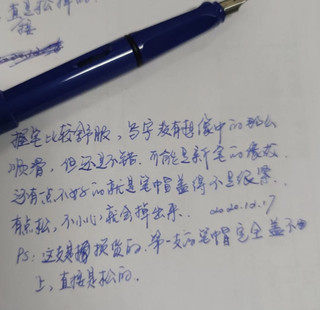 直是松掉的
握笔比较舒服，写字没有想像中的那么
顺滑，但还是不错，可能是新笔的缘故．
还有点不好的就是笔帽盖得不是很紧．
有点松，不小心就会掉出来． 2020.10.17
PS：这支是换货的．第一支的笔帽完全盖不
上，直接是松的．